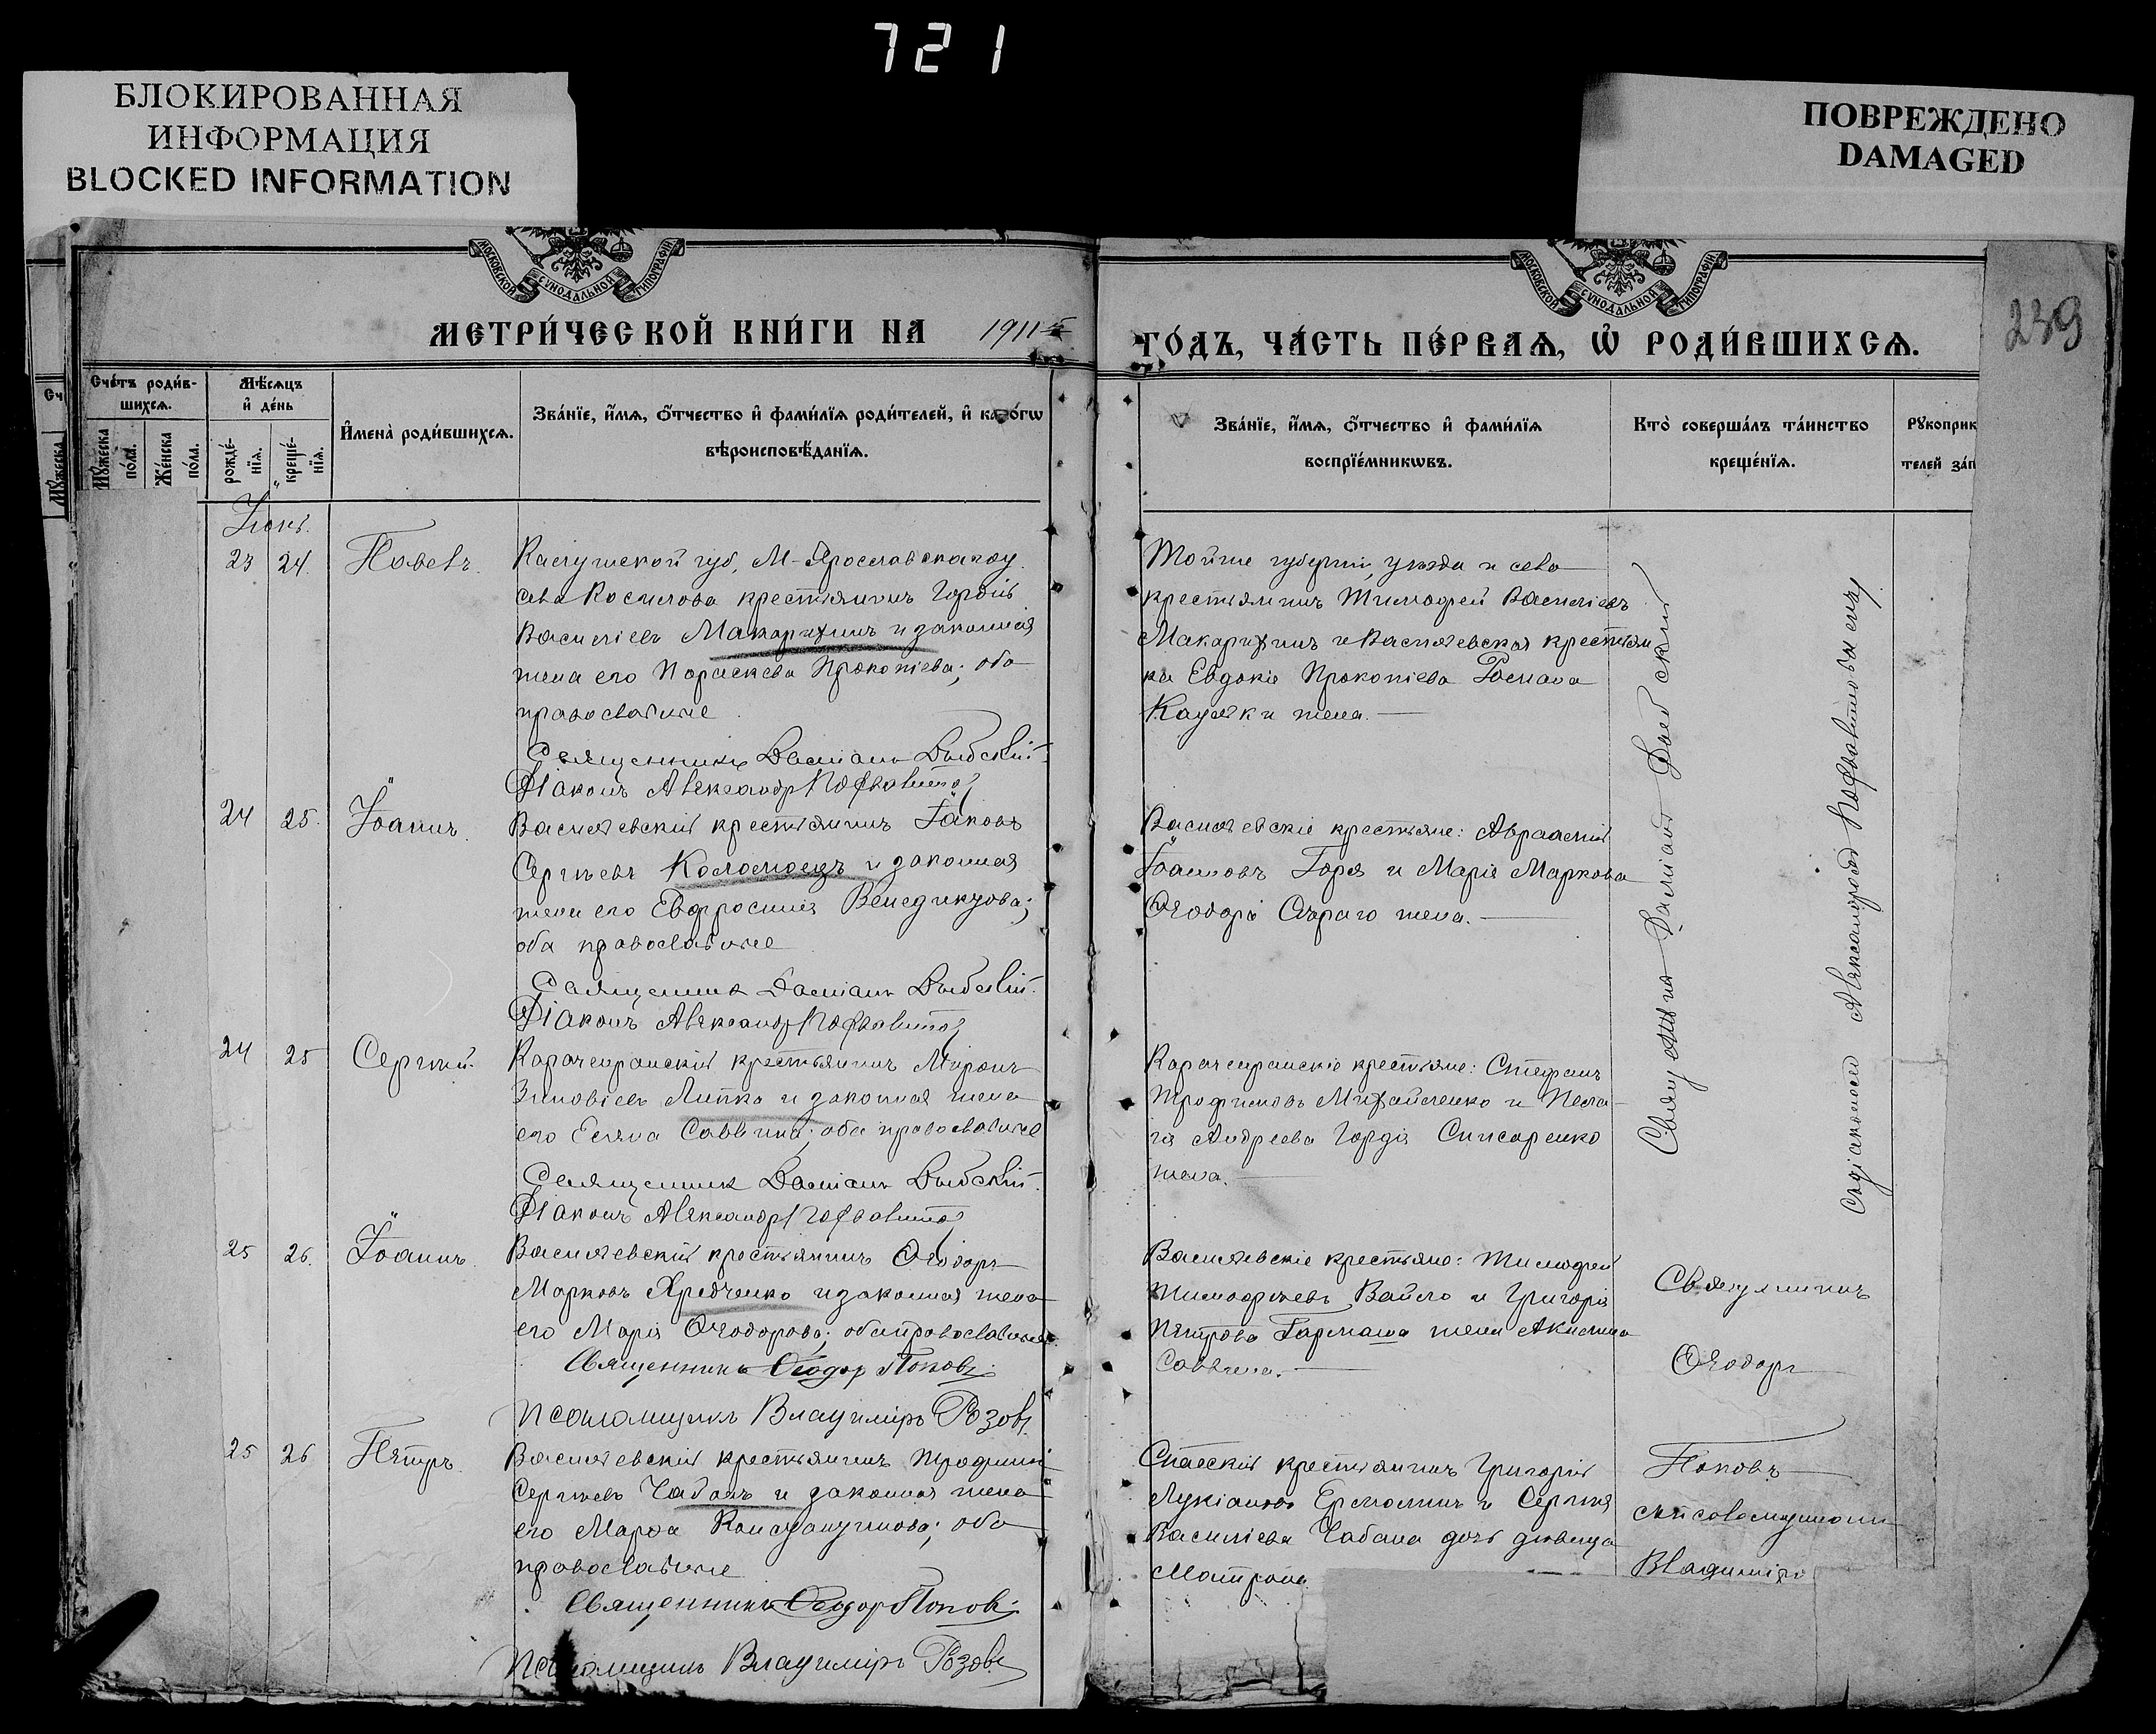 721
БЛОКИРОВАННАЯ
ИНФОРМАЦИЯ
BLOCKED INFORMATION
ПОВРЕЖДЕНО
DAMAGED
МОСКОВСКОЙ СѴНОДАЛЬНОЙ ТИПОГРАФІИ
МОСКОВСКОЙ СѴНОДАЛЬНОЙ ТИПОГРАФІИ
239
МЕТРИ́ЧЕСКОЙ КНИ́ГИ НА 1911й
ГО́ДЪ, ЧА́СТЬ ПЕ́РВАѦ, Ѡ҆ РОДИ́ВШИХСѦ.
Сче́тъ роди́в-
шихсѧ.
Мꙋ́жеска по́ла.
Же́нска по́ла.
Мѣ́сѧцъ
и҆ де́нь
рожде́-
нїѧ.
креще́-
нїѧ.
И҆мена̀ роди́вшихсѧ.
Зва́нїе, и҆́мѧ, ѻ҆́тчество и҆ фами́лїѧ роди́телей, и҆ како́гѡ
вѣроисповѣ́данїѧ.
Зва́нїе, и҆́мѧ, ѻ҆́тчество и҆ фами́лїѧ
воспрїе́мникѡвъ.
Кто̀ соверша́лъ та́инство
креще́нїѧ.
Рꙋкоприк
телей за́п
Іюнь.
23 24. Павелъ.
Калужской губ, М-Ярославскаго у.
села крестьянинъ Гордій
Василіевъ Макарихинъ и законная
жена его Параскева Прокопіева; оба
православные
Священникъ Даміанъ
Діаконъ Александръ
Тойже губерніи, уѣзда и села
крестьянинъ Тимофей Василіевъ
Макарихинъ и Васильевская крестьян
ка Евдокія Прокопіева Романа
жена.
24 25. Іоаннъ.
Васильевскій крестьянинъ Іаковъ
Сергѣевъ Коломоецъ и законная
жена его Евфросинія Венедиктова;
оба православные
Священникъ Даміанъ
Діаконъ Александръ
Васильевскіе крестьяне: Авраамій
Іоанновъ Горя и Марія Маркова
Ѳеодора Сѣраго жена.
24 25 Сергій.
крестьянинъ Миронъ
Зиновіевъ Липко и законная жена
его Елена Саввина; оба православные
Священникъ Даміанъ
Діаконъ Александръ
крестьяне: Стефанъ
Трофимовъ Михайленко и Пела-
гія Андреева Гордія Слисаренко
жена.
25 26. Іоаннъ.
Васильевскій крестьянинъ Ѳеодоръ
Марковъ и законная жена
его Марія Ѳеодорова; оба православные.
Священникъ Ѳеодоръ Поповъ.
Псаломщикъ Владиміръ Розовъ.
Васильевскіе крестьяне: Тимофей
Тимофѣевъ Вайло и Григорія
Петрова Гармаша жена Акилина
Саввина.
Священникъ
Ѳеодоръ
25 26 Петръ.
Васильевскій крестьянинъ Трофимъ
Сергѣевъ Чабанъ и законная жена
его Марѳа Константинова; оба
православные
Священникъ Ѳеодоръ Поповъ.
Псаломщикъ Владиміръ Розовъ
Спасскій крестьянинъ Григорій
Лукіановъ Ермолинъ и Сергія
Василіева Чабана дочь дѣвица
Матрона
Поповъ
съ псаломщикомъ
Владиміро